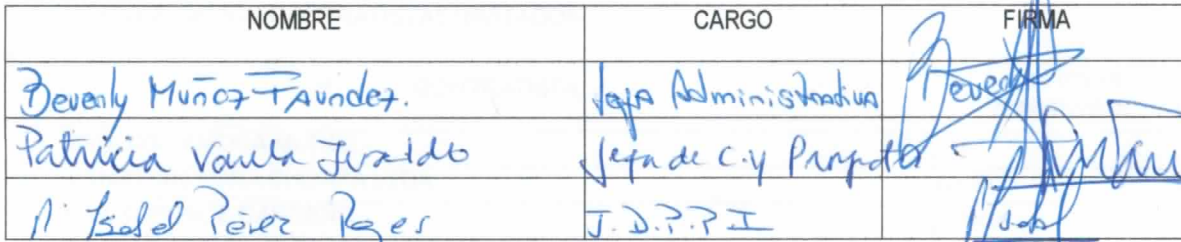 NOMBRE CARGO FIRMA
Beverly Muñoz Faundez. Jefa Administrativa Beverly
Patricia Jefa de C. y
Isabel Pérez Reyes J.D.P.P.I